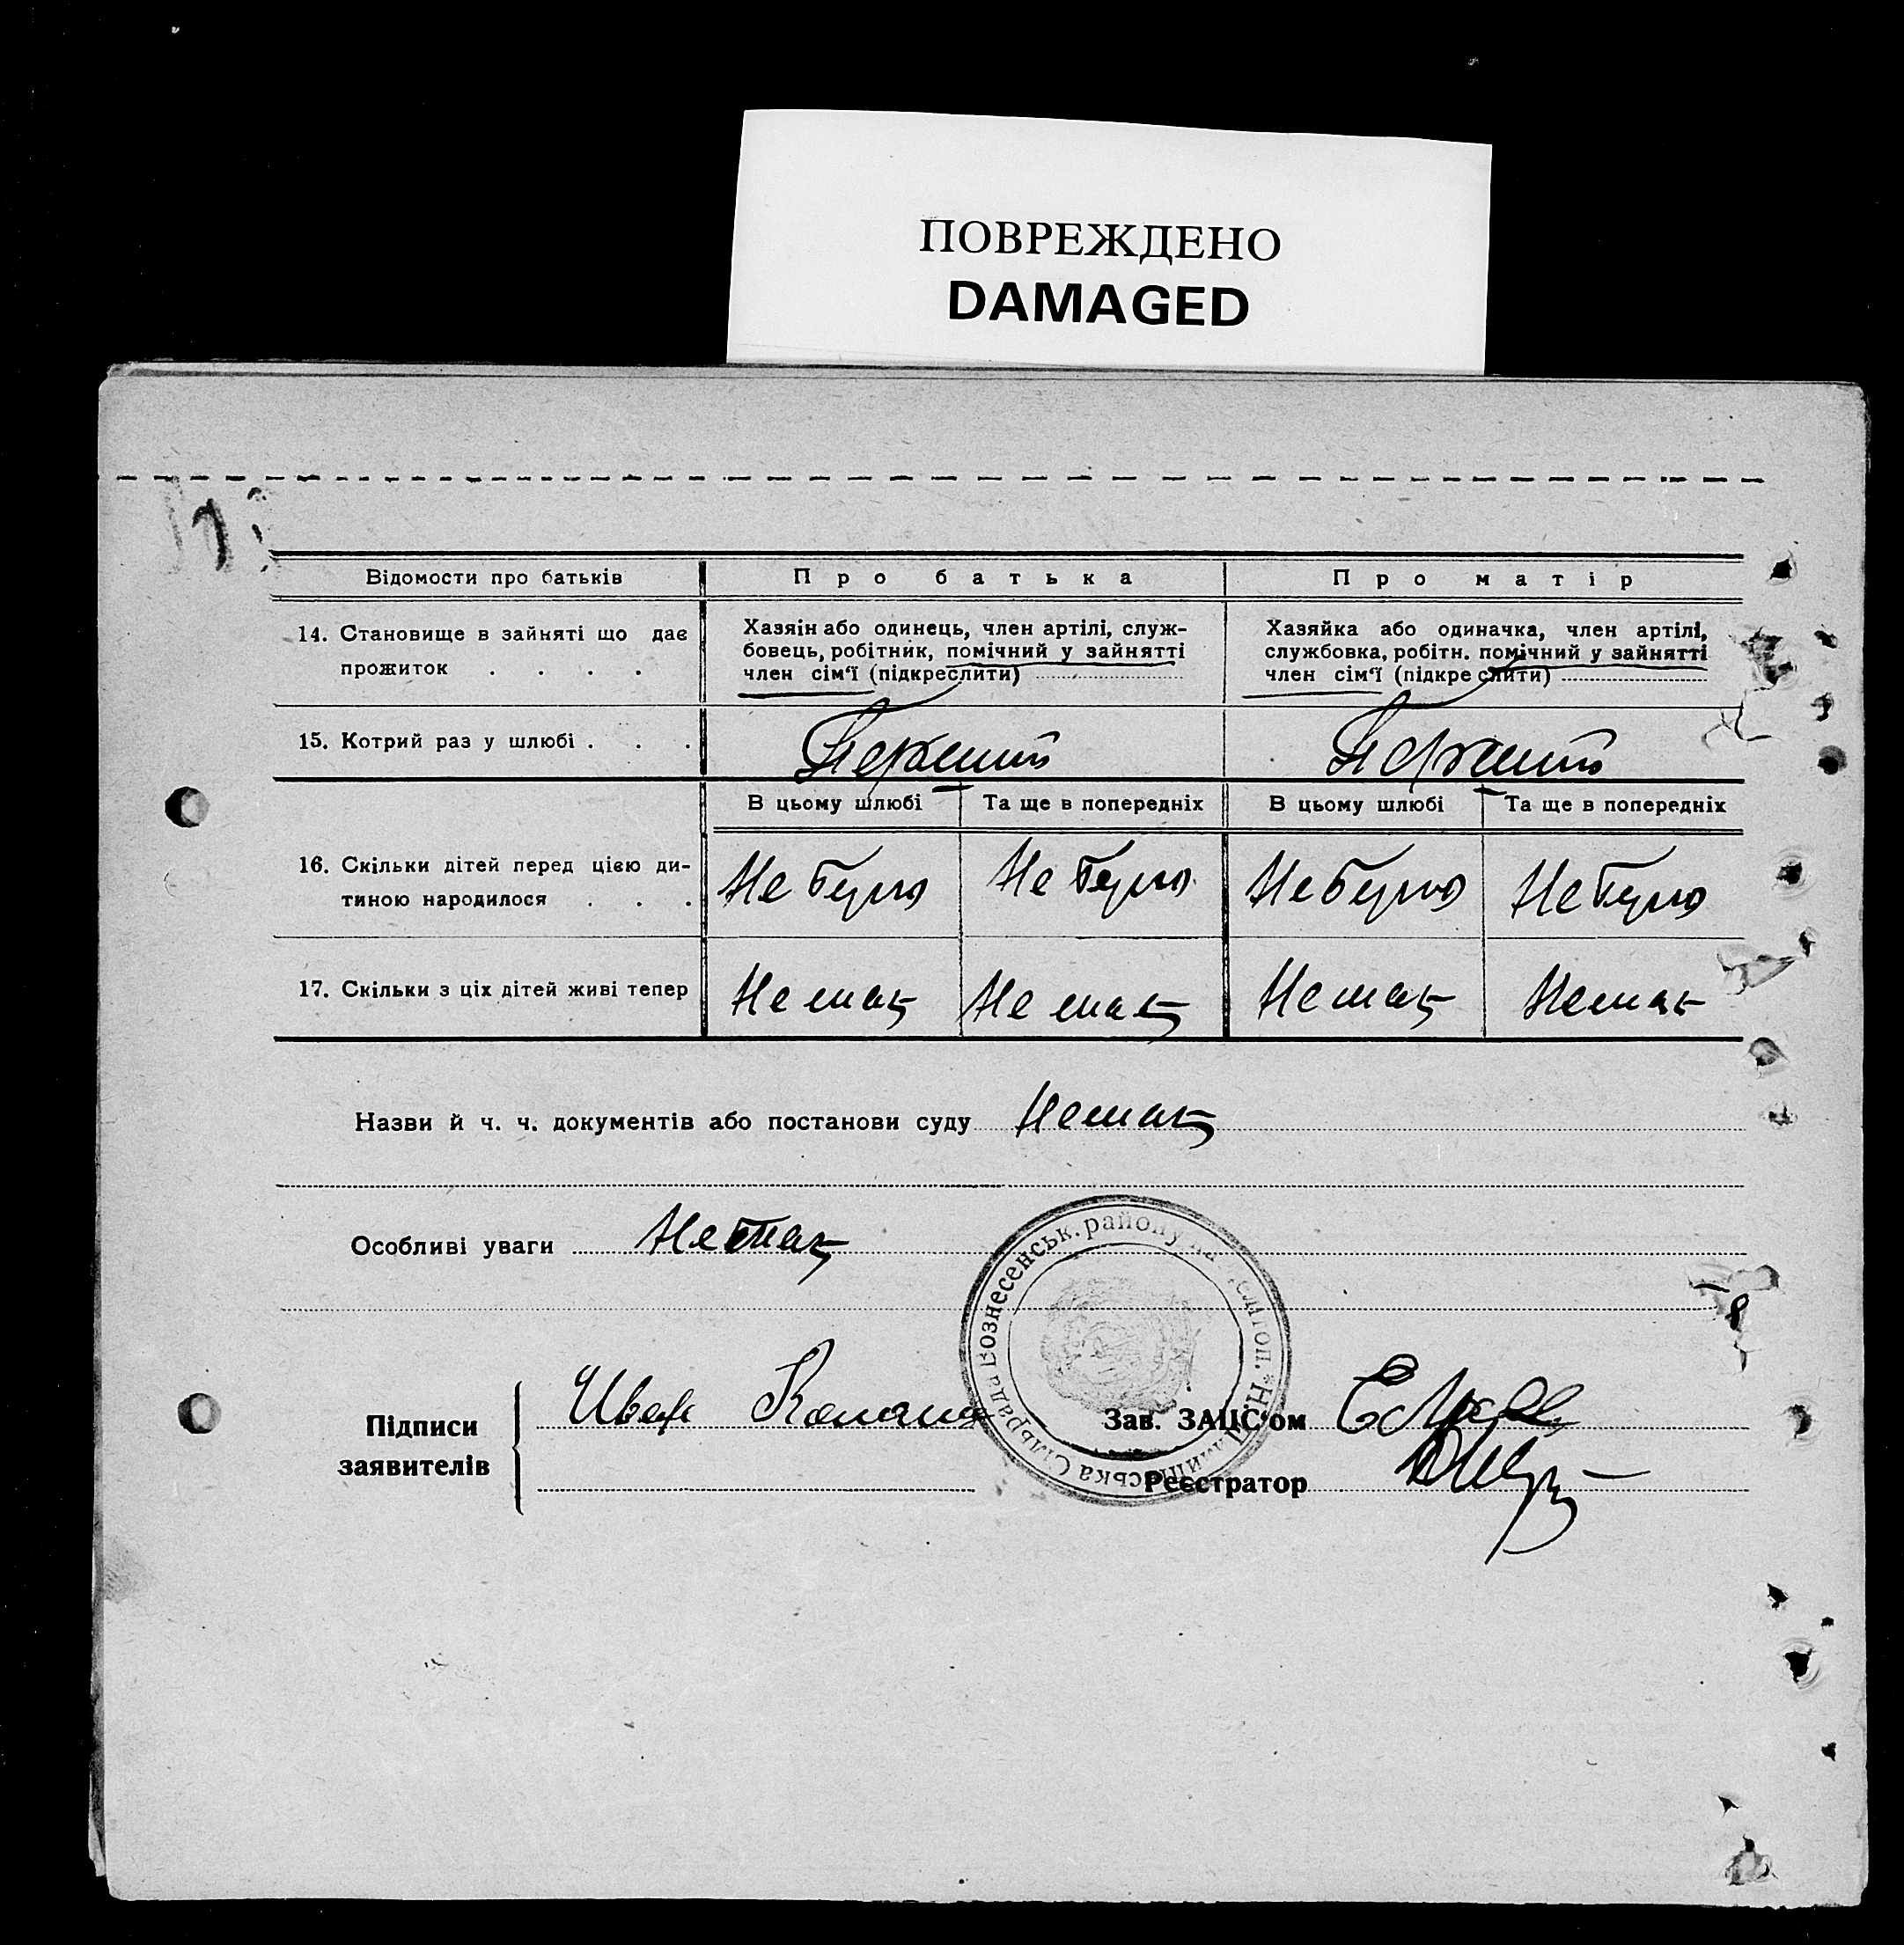 ПОВРЕЖДЕНО
DAMAGED
Відомости про батьків
Про батька
Про матір
14. Становище в зайняті що дає
прожиток . . . .
Хазяін або одинець, член артілі, служ-
бовець, робітник, помічний у зайнятті
член сім'ї (підкреслити)
Хазяйка або одиначка, член артілі,
службовка, робітн. помічний у зайнятті
член сім'ї (підкреслити)
15. Котрий раз у шлюбі . . .
Перший
Перший
В цьому шлюбі
Та ще в попередніх
В цьому шлюбі
Та ще в попередніх
16. Скільки дітей перед цією ди-
тиною народилося . . .
Не було
Не було
Не було
Не було
17. Скільки з ціх дітей живі тепер
Немає
Немає
Немає
Немає
Назви й ч. ч. документів або постанови суду Немає
Особливі уваги Немає
Вознесенськ. району на
Сільрада
Підписи
заявителів
Иван
Зав. ЗАЦС'ом
Реєстратор